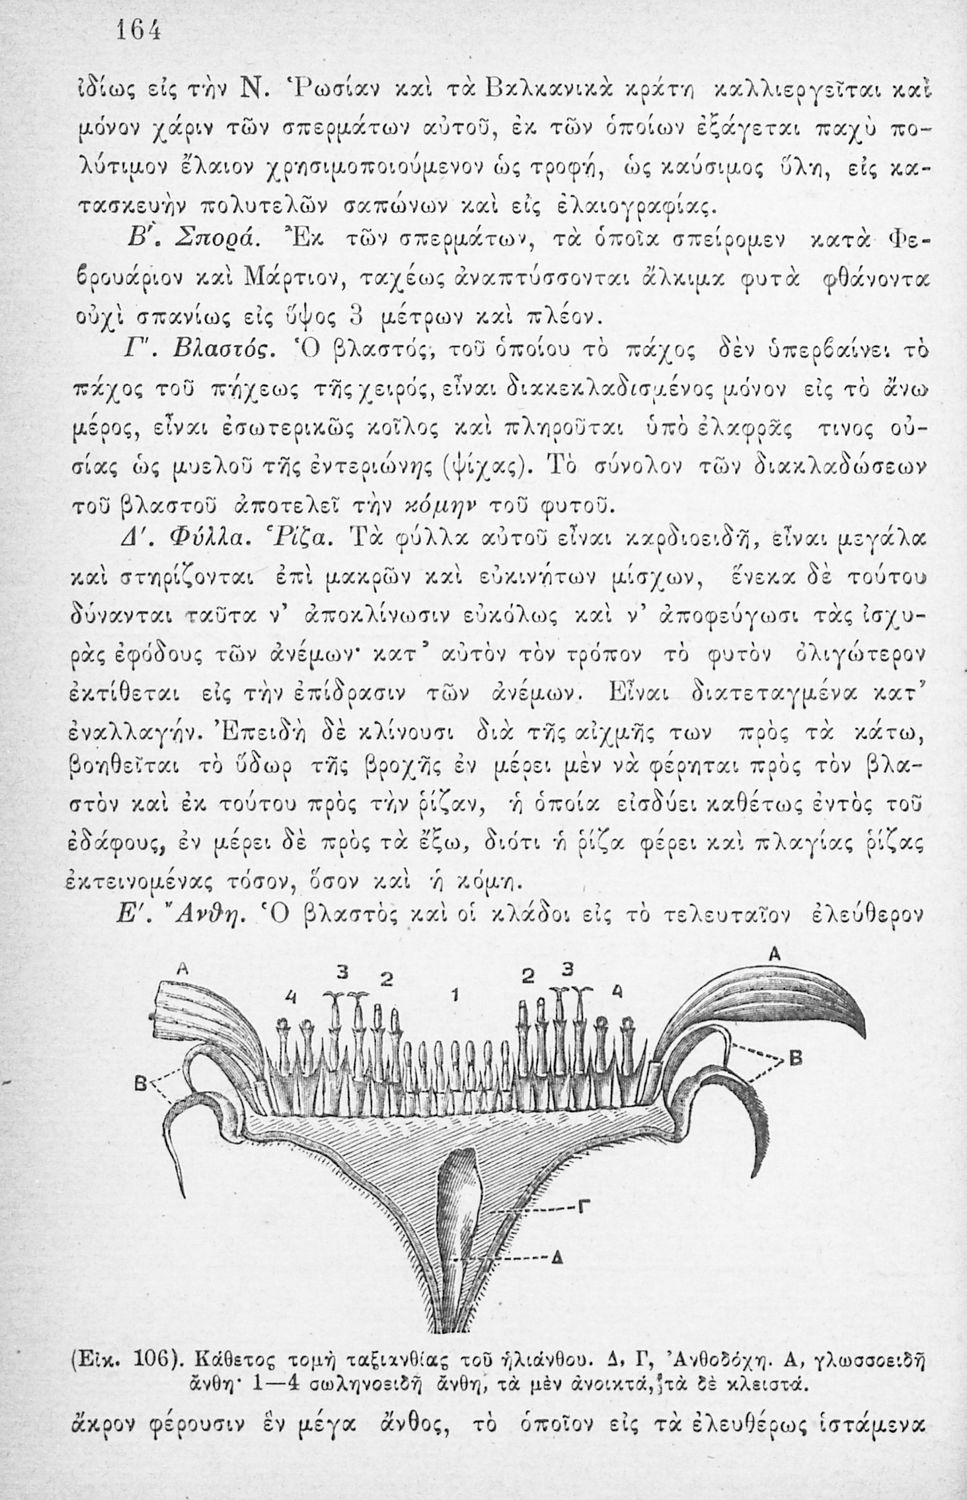 164
ἰδίως εἰς τὴν Ν. Ῥωσίαν καὶ τὰ Βαλκανικὰ κράτη καλλιεργεῖται καὶ
μόνον χάριν τῶν σπερμάτων αὐτοῦ, ἐκ τῶν ὁποίων ἐξάγεται παχὺ πο-
λύτιμον ἔλαιον χρησιμοποιούμενον ὡς τροφή, ὡς καύσιμος ὕλη, εἰς κα-
τασκευὴν πολυτελῶν σαπώνων καὶ εἰς ἐλαιογραφίας.
Β΄. Σπορά. Ἐκ τῶν σπερμάτων, τὰ ὁποῖα σπείρομεν κατὰ Φε-
βρουάριον καὶ Μάρτιον, ταχέως ἀναπτύσσονται ἄλκιμα φυτὰ φθάνοντα
οὐχὶ σπανίως εἰς ὕψος 3 μέτρων καὶ πλέον.
Γ΄. Βλαστός. Ὁ βλαστός, τοῦ ὁποίου τὸ πάχος δὲν ὑπερβαίνει τὸ
πάχος τοῦ πήχεως τῆς χειρός, εἶναι διακεκλαδισμένος μόνον εἰς τὸ ἄνω
μέρος, εἶναι ἐσωτερικῶς κοῖλος καὶ πληροῦται ὑπὸ ἐλαφρᾶς τινος οὐ-
σίας ὡς μυελοῦ τῆς ἐντεριώνης (ψίχας). Τὸ σύνολον τῶν διακλαδώσεων
τοῦ βλαστοῦ ἀποτελεῖ τὴν κόμην τοῦ φυτοῦ.
Δ΄. Φύλλα. Ῥίζα. Τὰ φύλλα αὐτοῦ εἶναι καρδιοειδῆ, εἶναι μεγάλα
καὶ στηρίζονται ἐπὶ μακρῶν καὶ εὐκινήτων μίσχων, ἕνεκα δὲ τούτου
δύνανται ταῦτα ν' ἀποκλίνωσιν εὐκόλως καὶ ν' ἀποφεύγωσι τὰς ἰσχυ-
ρὰς ἐφόδους τῶν ἀνέμων· κατ' αὐτὸν τὸν τρόπον τὸ φυτὸν ὀλιγώτερον
ἐκτίθεται εἰς τὴν ἐπίδρασιν τῶν ἀνέμων. Εἶναι διατεταγμένα κατ'
ἐναλλαγήν. Ἐπειδὴ δὲ κλίνουσι διὰ τῆς αἰχμῆς των πρὸς τὰ κάτω,
βοηθεῖται τὸ ὕδωρ τῆς βροχῆς ἐν μέρει μὲν νὰ φέρηται πρὸς τὸν βλα-
στὸν καὶ ἐκ τούτου πρὸς τὴν ῥίζαν, ἡ ὁποία εἰσδύει καθέτως ἐντὸς τοῦ
ἐδάφους, ἐν μέρει δὲ πρὸς τὰ ἔξω, διότι ἡ ῥίζα φέρει καὶ πλαγίας ῥίζας
ἐκτεινομένας τόσον, ὅσον καὶ ἡ κόμη.
Ε΄. Ἄνθη. Ὁ βλαστὸς καὶ οἱ κλάδοι εἰς τὸ τελευταῖον ἐλεύθερον
Α 4 3 2 1 2 3 4 Α
Β Β
Γ
Δ
(Εἰκ. 106). Κάθετος τομὴ ταξιανθίας τοῦ ἡλιάνθου. Δ, Γ, Ἀνθοδόχη. Α, γλωσσοειδῆ
ἄνθη· 1—4 σωληνοειδῆ ἄνθη, τὰ μὲν ἀνοικτά, τὰ δὲ κλειστά.
ἄκρον φέρουσιν ἓν μέγα ἄνθος, τὸ ὁποῖον εἰς τὰ ἐλευθέρως ἱστάμενα